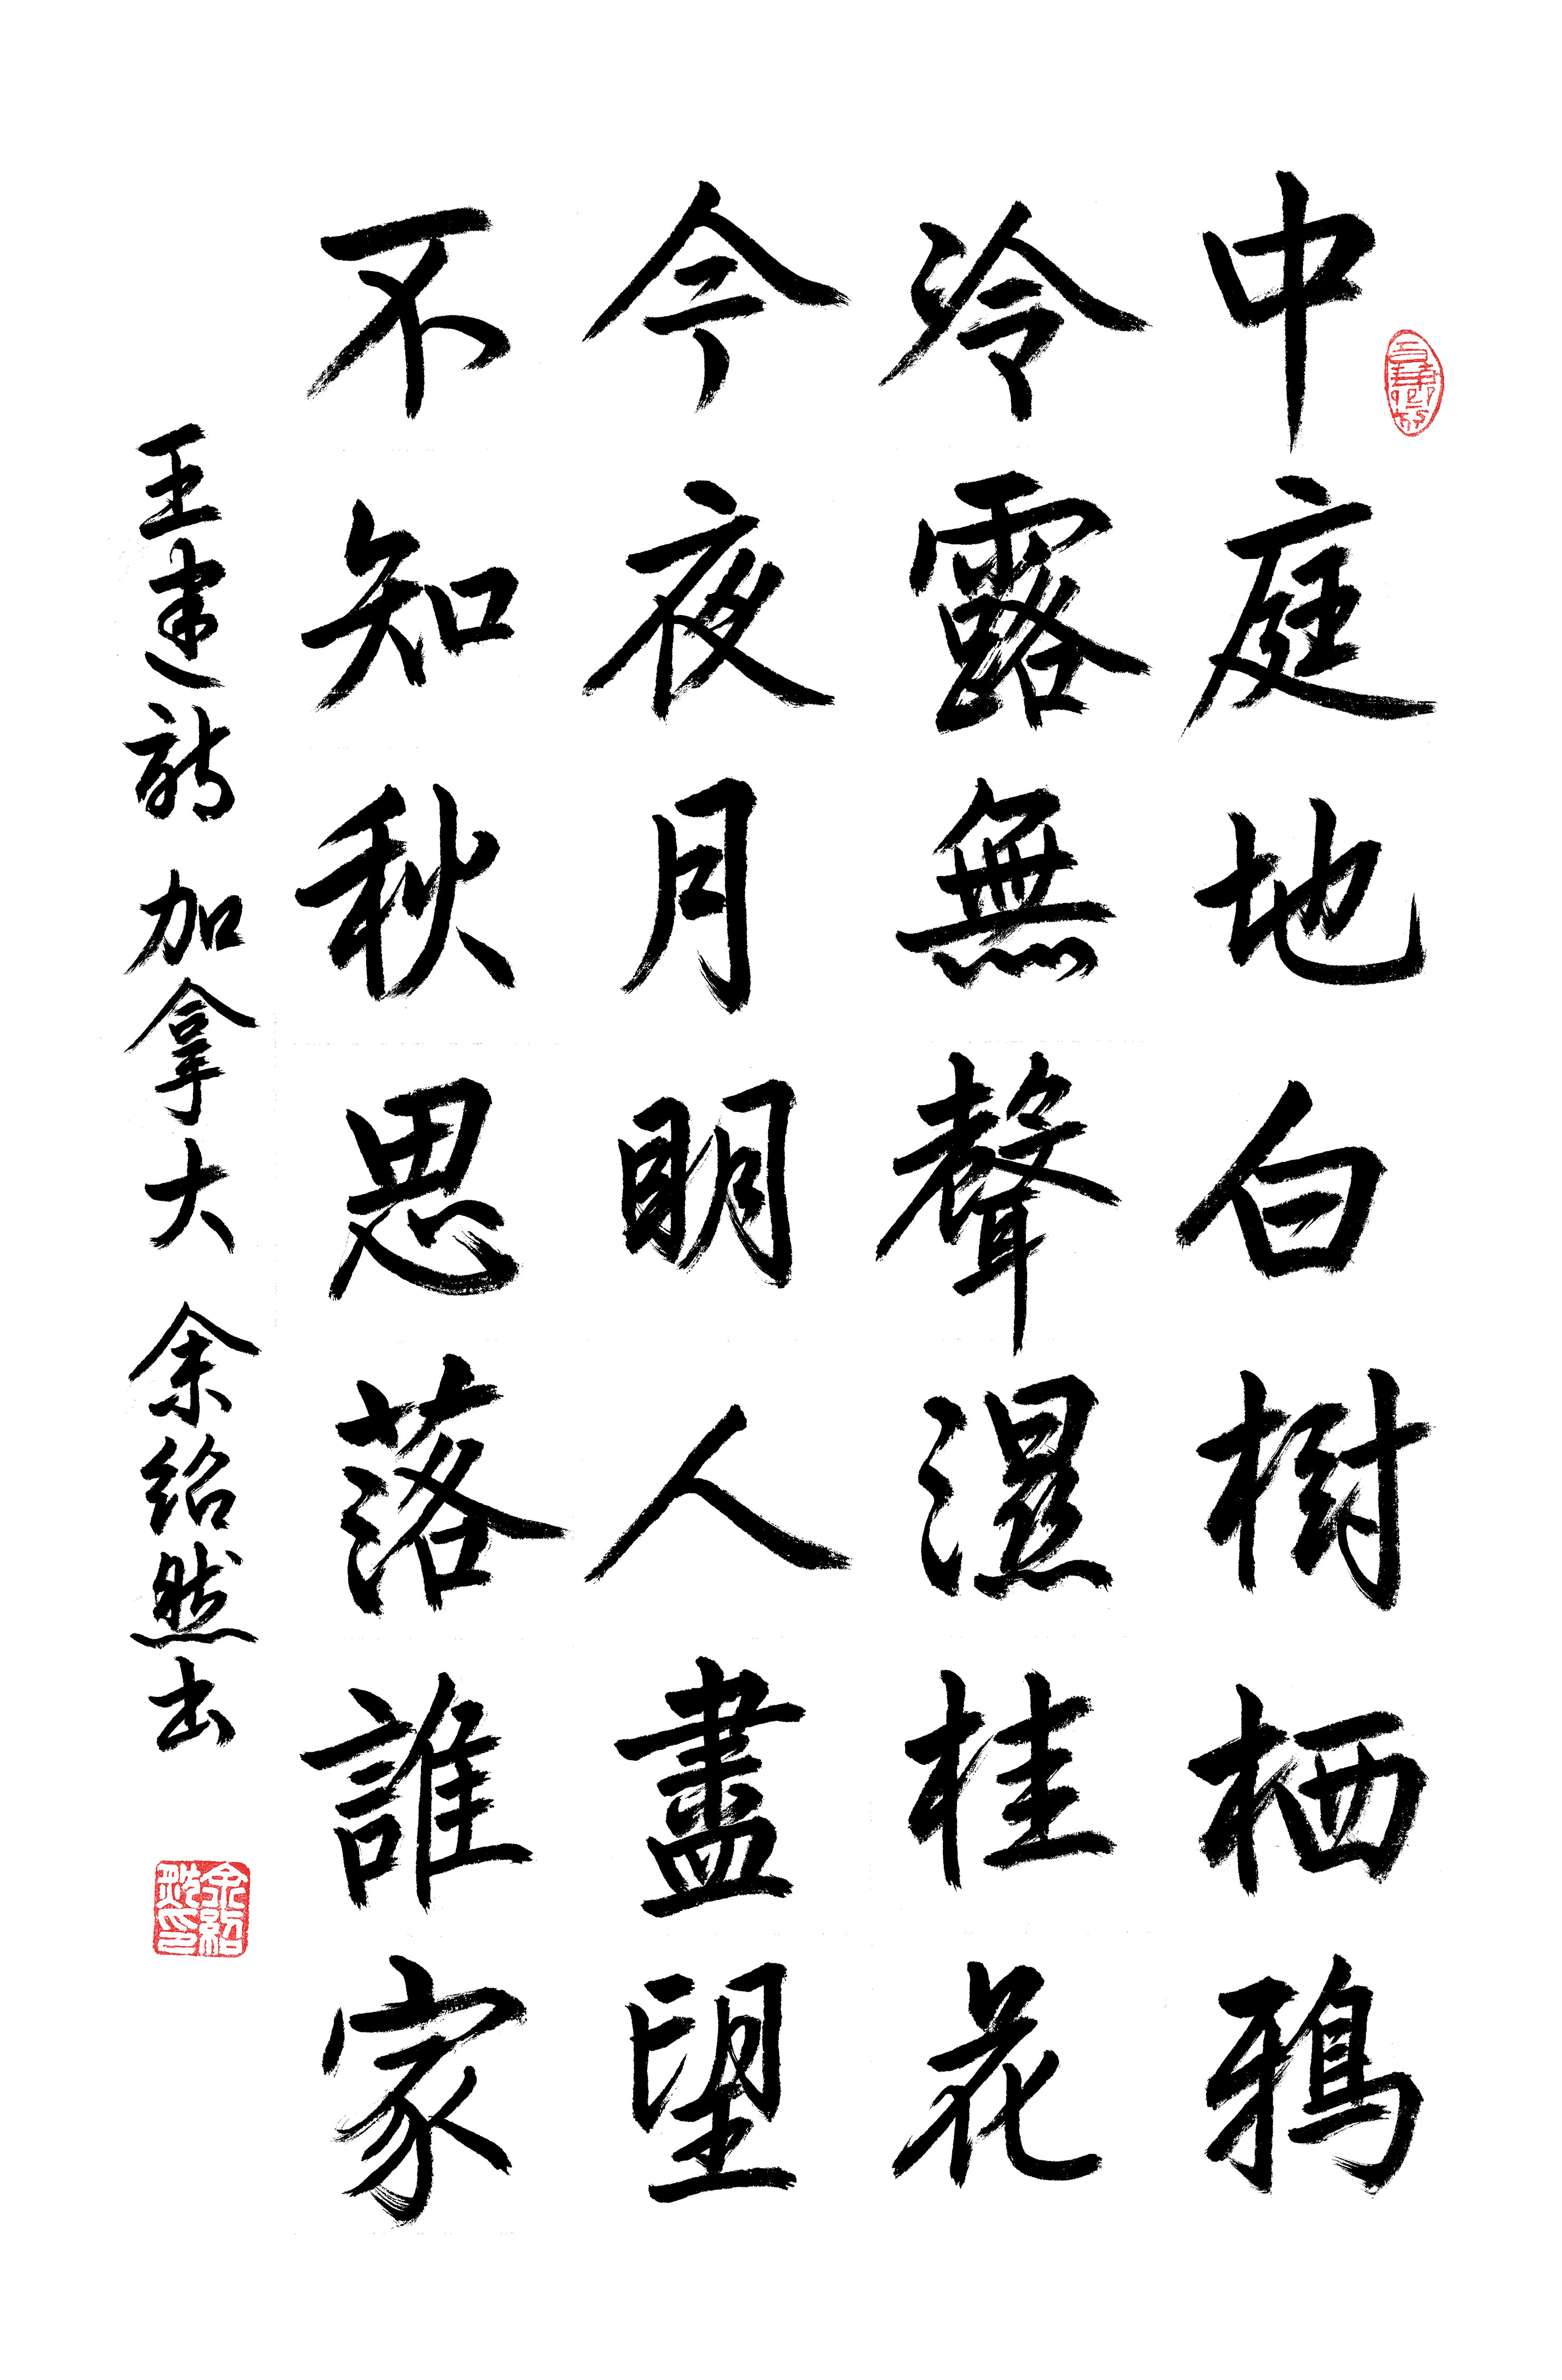 中庭地白樹栖鴉
冷露無聲濕桂花
今夜月明人盡望
不知秋思落誰家
王建 加拿大 余紹然书
余紹然印